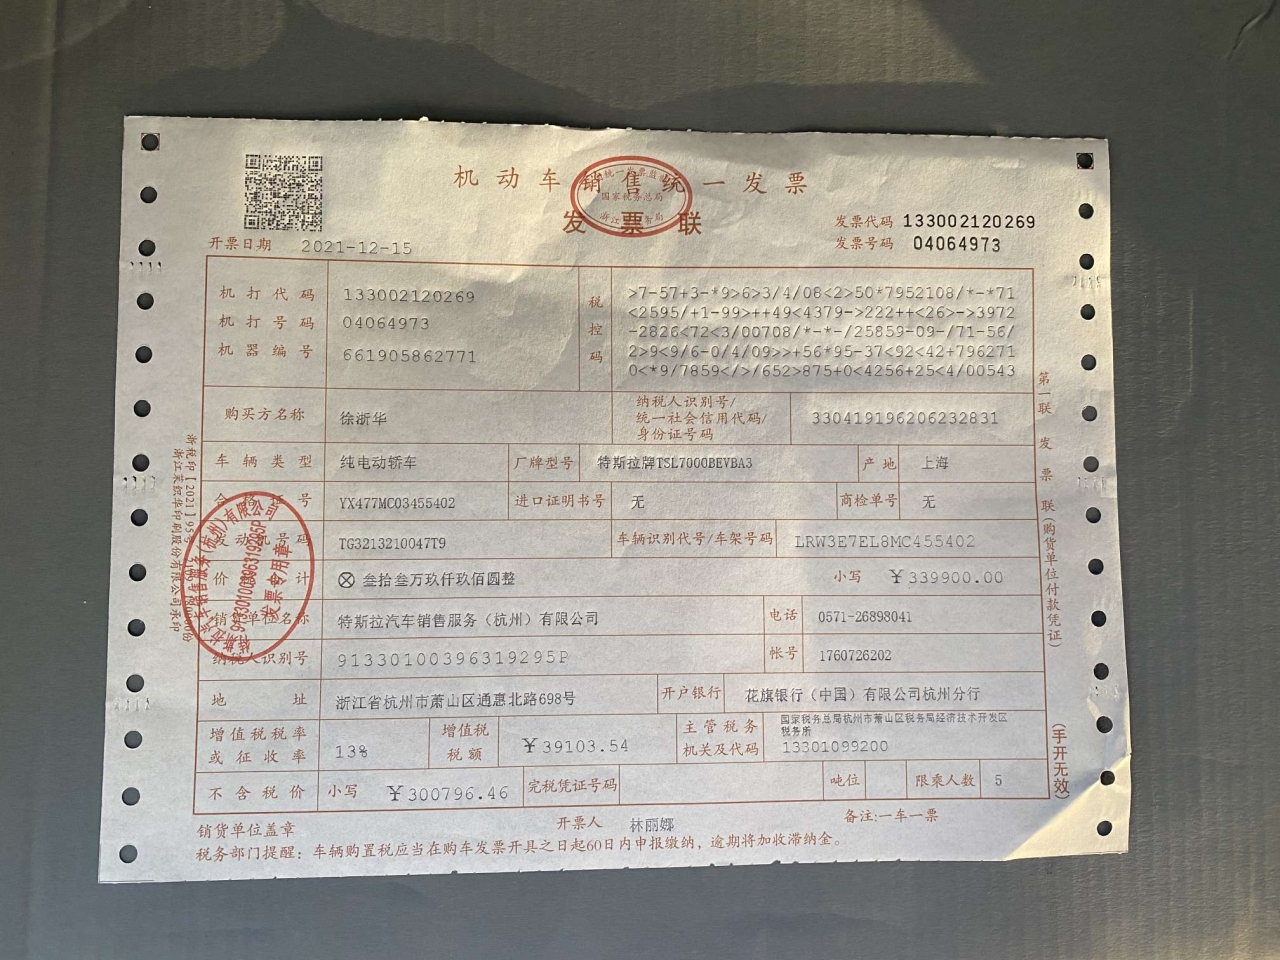 机动车销售统一发票
发票联
国家税务总局
发票代码 133002120269
发票号码 04064973
开票日期 2021-12-15
机打代码 133002120269
机打号码 04064973
机器编号 661905862771
税控码
>7-57+3-*9>6>3/4/08<2>50*7952108/*-*71
<2595/+1-99>++49<4379->222++<26>->3972
-2826<72<3/00708/*-*-/25859-09-/71-56/
2>9<9/6-0/4/09>>+56*95-37<92<42+796271
0<*9/7859</>/652>875+0<4256+25<4/00543
购买方名称 徐浙华
纳税人识别号/
统一社会信用代码/
身份证号码
330419196206232831
车辆类型 纯电动轿车 厂牌型号 特斯拉牌TSL7000BEVBA3 产地 上海
合格证号 YX477MC03455402 进口证明书号 无 商检单号 无
发动机号码 TG3213210047T9 车辆识别代号/车架号码 LRW3E7EL8MC455402
价税合计 ⊗ 叁拾叁万玖仟玖佰圆整 小写 ￥339900.00
销货单位名称 特斯拉汽车销售服务（杭州）有限公司 电话 0571-26898041
纳税人识别号 91330100396319295P 帐号 1760726202
地址 浙江省杭州市萧山区通惠北路698号 开户银行 花旗银行（中国）有限公司杭州分行
增值税税率
或征收率
13%
增值税
税额
￥39103.54
主管税务
机关及代码
国家税务总局杭州市萧山区税务局经济技术开发区
税务所
13301099200
不含税价 小写 ￥300796.46 完税凭证号码 吨位 限乘人数 5
销货单位盖章 开票人 林丽娜 备注:一车一票
税务部门提醒：车辆购置税应当在购车发票开具之日起60日内申报缴纳，逾期将加收滞纳金。
第一联 发票联（购货单位付款凭证）
（手开无效）
特斯拉汽车销售服务(杭州)有限公司
91330100396319295P
发票专用章